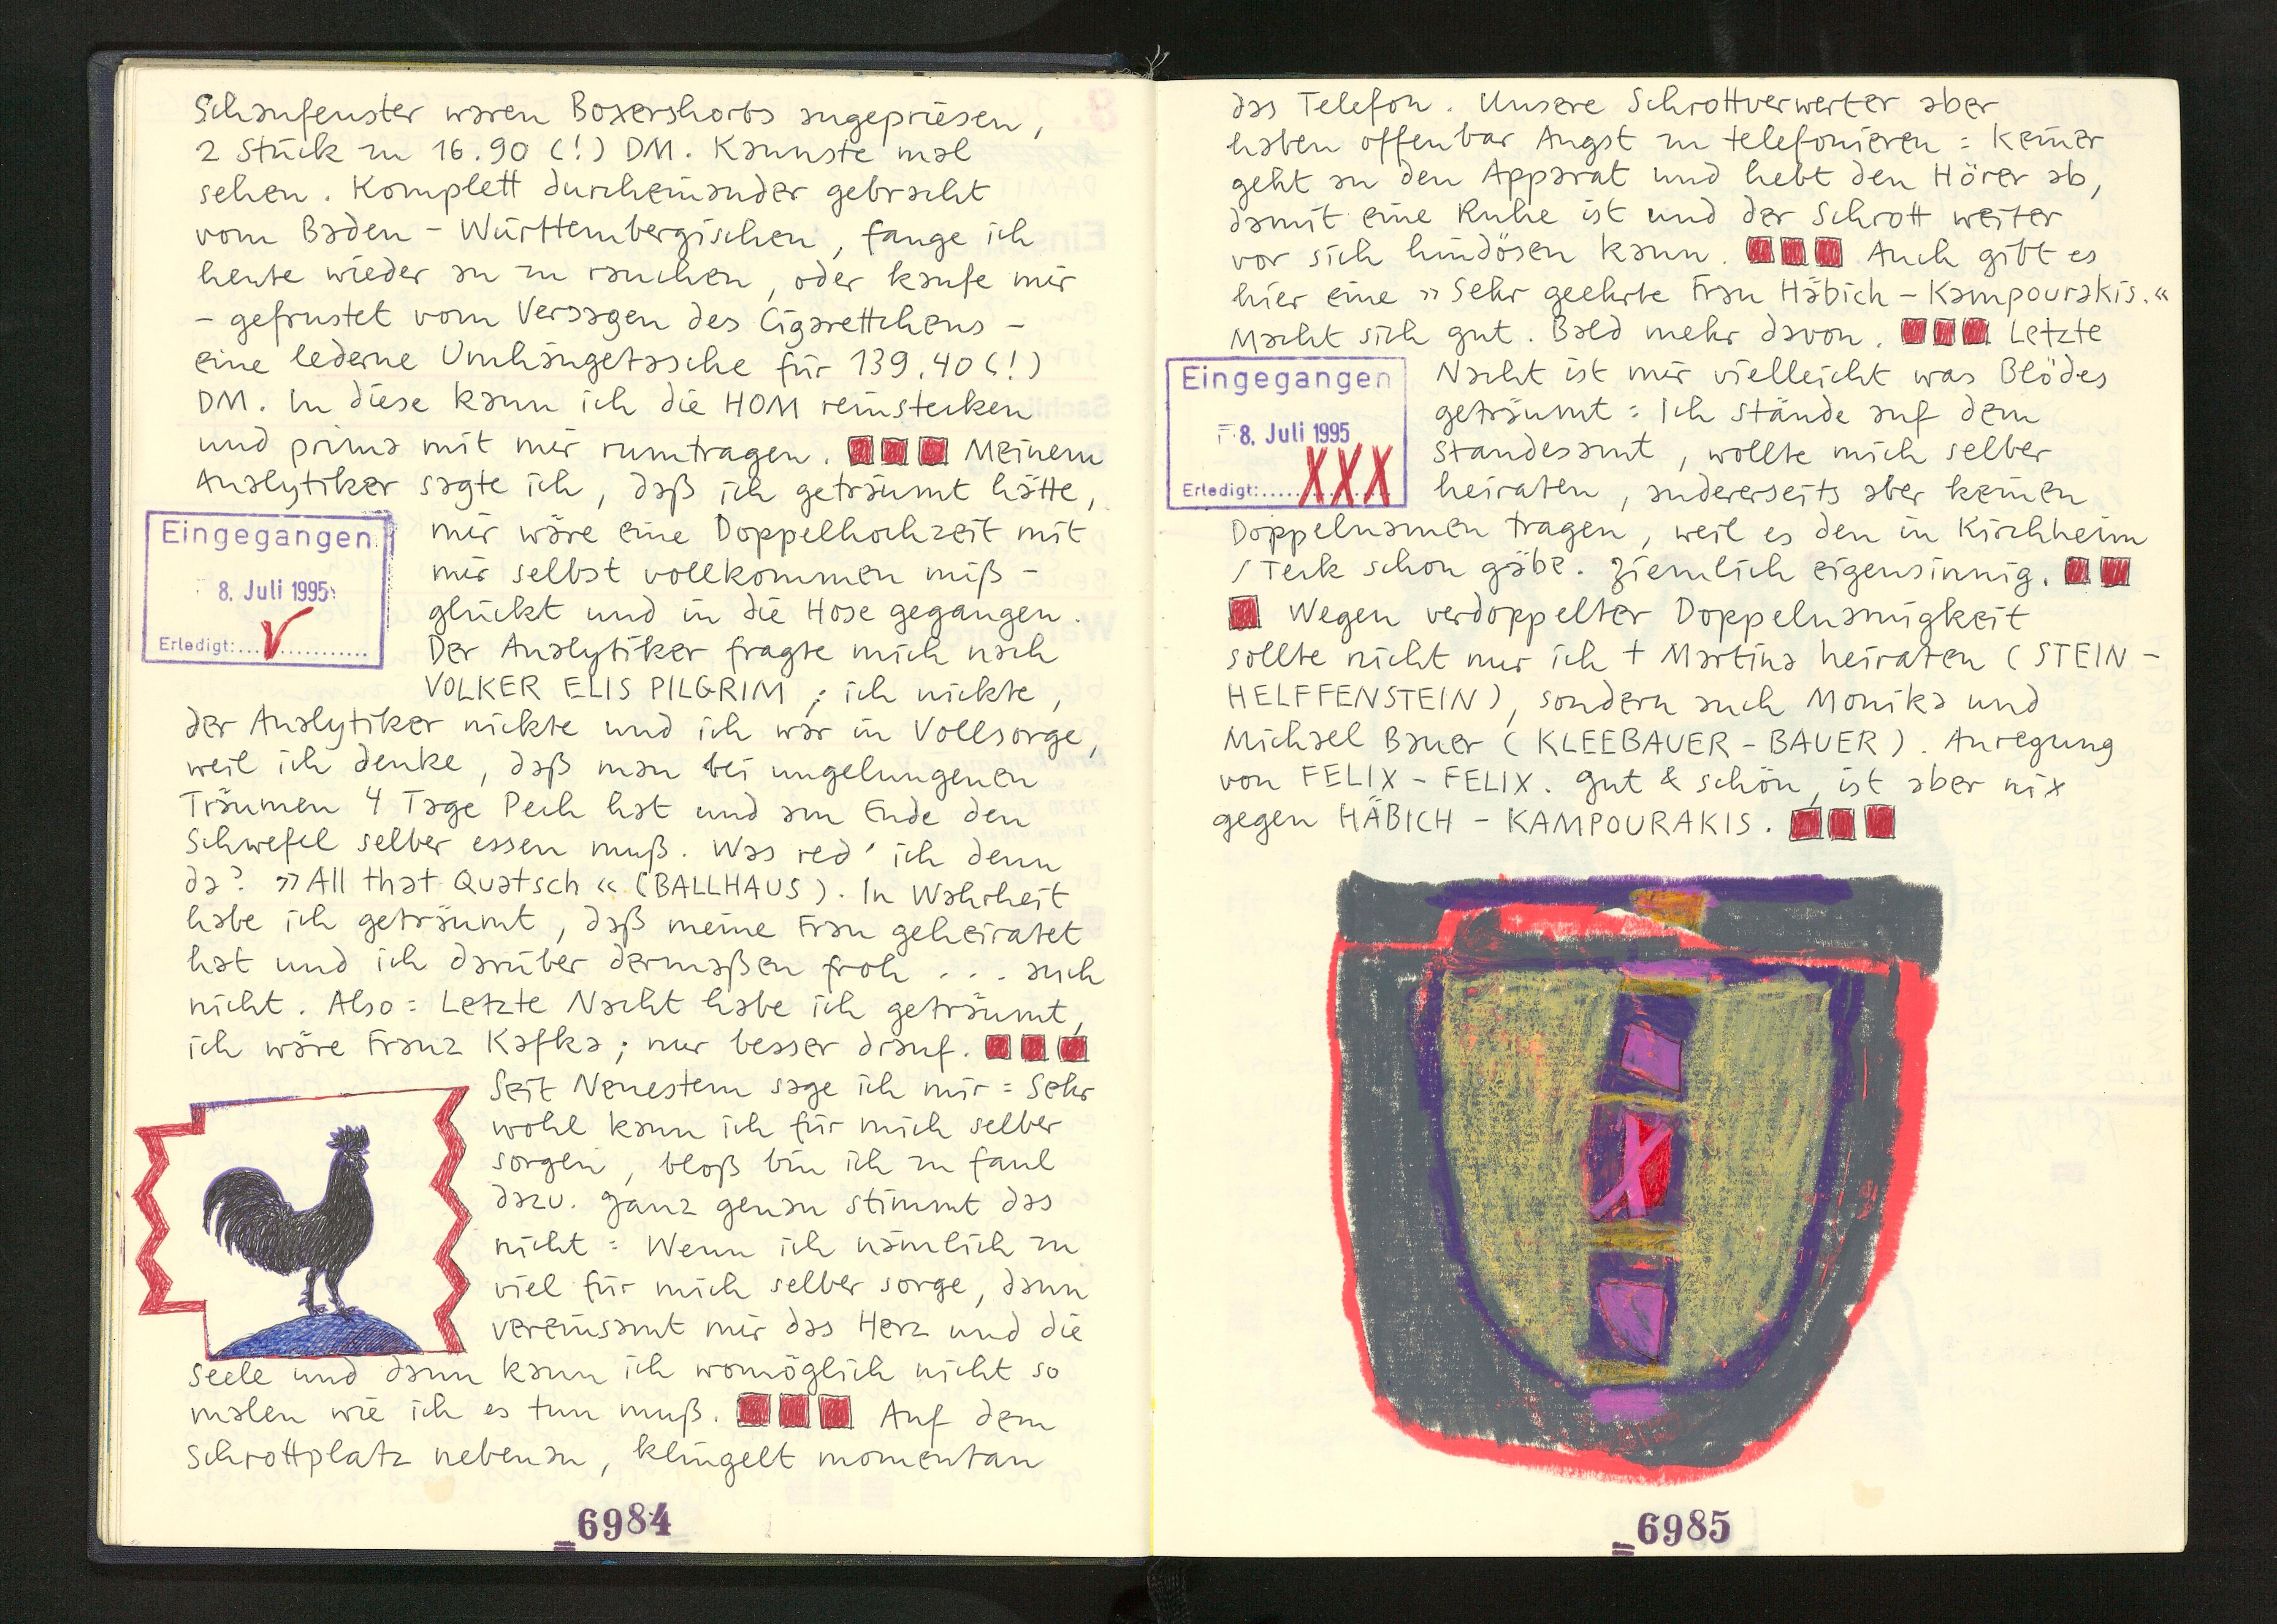 Schaufenster waren Boxershorts angepriesen,
2 Stück zu 16.90 (!) DM. Kannste mal
sehen. Komplett durcheinander gebracht
vom Baden-Württembergischen, fange ich
heute wieder an zu rauchen, oder kaufe mir
- gefrustet vom Versagen des Cigarettchens -
eine lederne Umhängetasche für 139.40 (!)
DM. In diese kann ich die HOM reinstecken
und prima mit mir rumtragen. Meinem
Analytiker sagte ich, daß ich geträumt hätte,
mir wäre eine Doppelhochzeit mit
mir selbst vollkommen miß-
glückt und in die Hose gegangen.
Der Analytiker fragte mich nach
VOLKER ELIS PILGRIM; ich nickte,
der Analytiker nickte und ich war in Vollsorge,
weil ich denke, daß man bei ungelungenen
Träumen 4 Tage Pech hat und am Ende den
Schwefel selber essen muß. Was red' ich denn
da? »All that Quatsch« (BALLHAUS). In Wahrheit
habe ich geträumt, daß meine Frau geheiratet
hat und ich darüber dermaßen froh ... auch
nicht. Also: Letzte Nacht habe ich geträumt,
ich wäre Franz Kafka; nur besser drauf.
Seit Neuestem sage ich mir: Sehr
wohl kann ich für mich selber
sorgen, bloß bin ich zu faul
dazu. Ganz genau stimmt das
nicht: Wenn ich nämlich zu
viel für mich selber sorge, dann
vereinsamt mir das Herz und die
Seele und dann kann ich womöglich nicht so
malen wie ich es tun muß. Auf dem
Schrottplatz nebenan, klingelt momentan
Eingegangen
8. Juli 1995
Erledigt:... V ...........
6984
das Telefon. Unsere Schrottverwerter aber
haben offenbar Angst zu telefonieren: Keiner
geht an den Apparat und hebt den Hörer ab,
damit eine Ruhe ist und der Schrott weiter
vor sich hindösen kann. Auch gibt es
hier eine »Sehr geehrte Frau Häbich-Kampourakis.«
Macht sich gut. Bald mehr davon. Letzte
Nacht ist mir vielleicht was Blödes
geträumt: Ich stände auf dem
Standesamt, wollte mich selber
heiraten, andererseits aber keinen
Doppelnamen tragen, weil es den in Kirchheim
/Teck schon gäbe. Ziemlich eigensinnig.
Wegen verdoppelter Doppelnamigkeit
sollte nicht nur ich + Martina heiraten (STEIN-
HELFFENSTEIN), sondern auch Monika und
Michael Bauer (KLEEBAUER-BAUER). Anregung
von FELIX-FELIX. Gut & schön, ist aber nix
gegen HÄBICH-KAMPOURAKIS.
Eingegangen
8. Juli 1995
Erledigt:..... XXX
6985